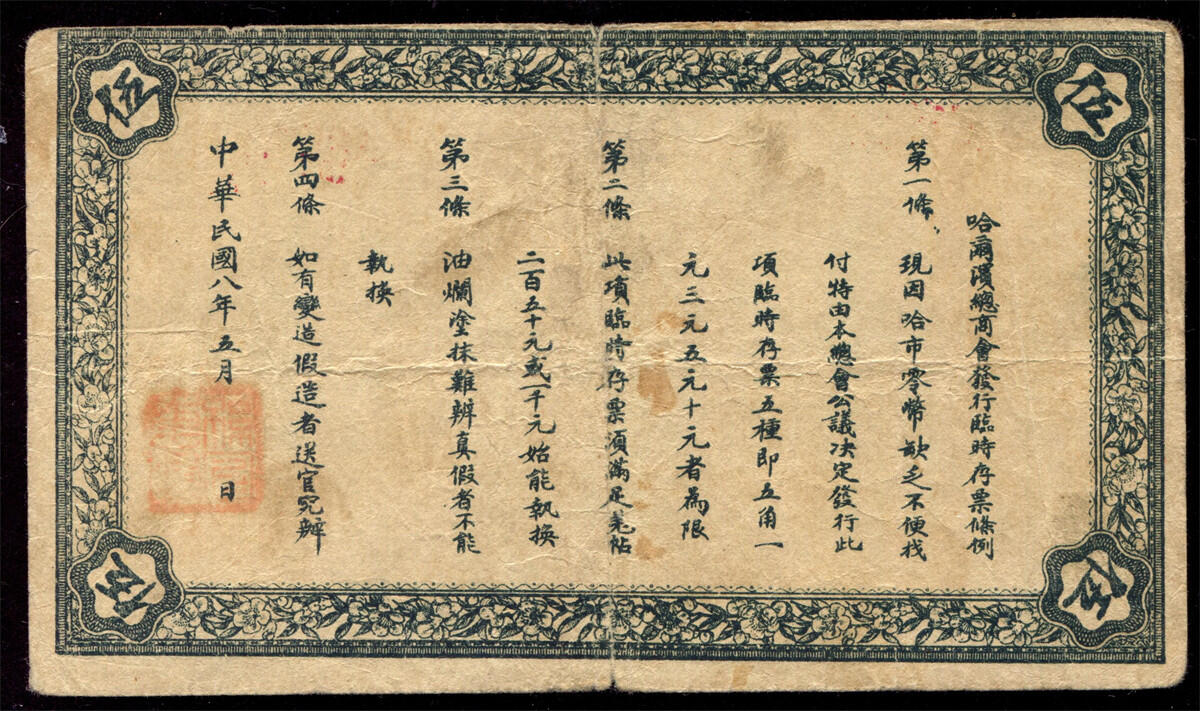 伍
伍
哈爾濱總商會發行臨時存票條例
第一條、 現因哈市零幣缺乏不便找
付特由本總會公議决定發行此
項臨時存票五種即五角一
元三元五元十元者為限
第二條 此項臨時存票須滿足羌帖
二百五十元或一千元始能執換
第三條 油爛塗抹難辨真假者不能
執換
第四條 如有變造假造者送官究辦
中華民國八年五月 日
伍
伍